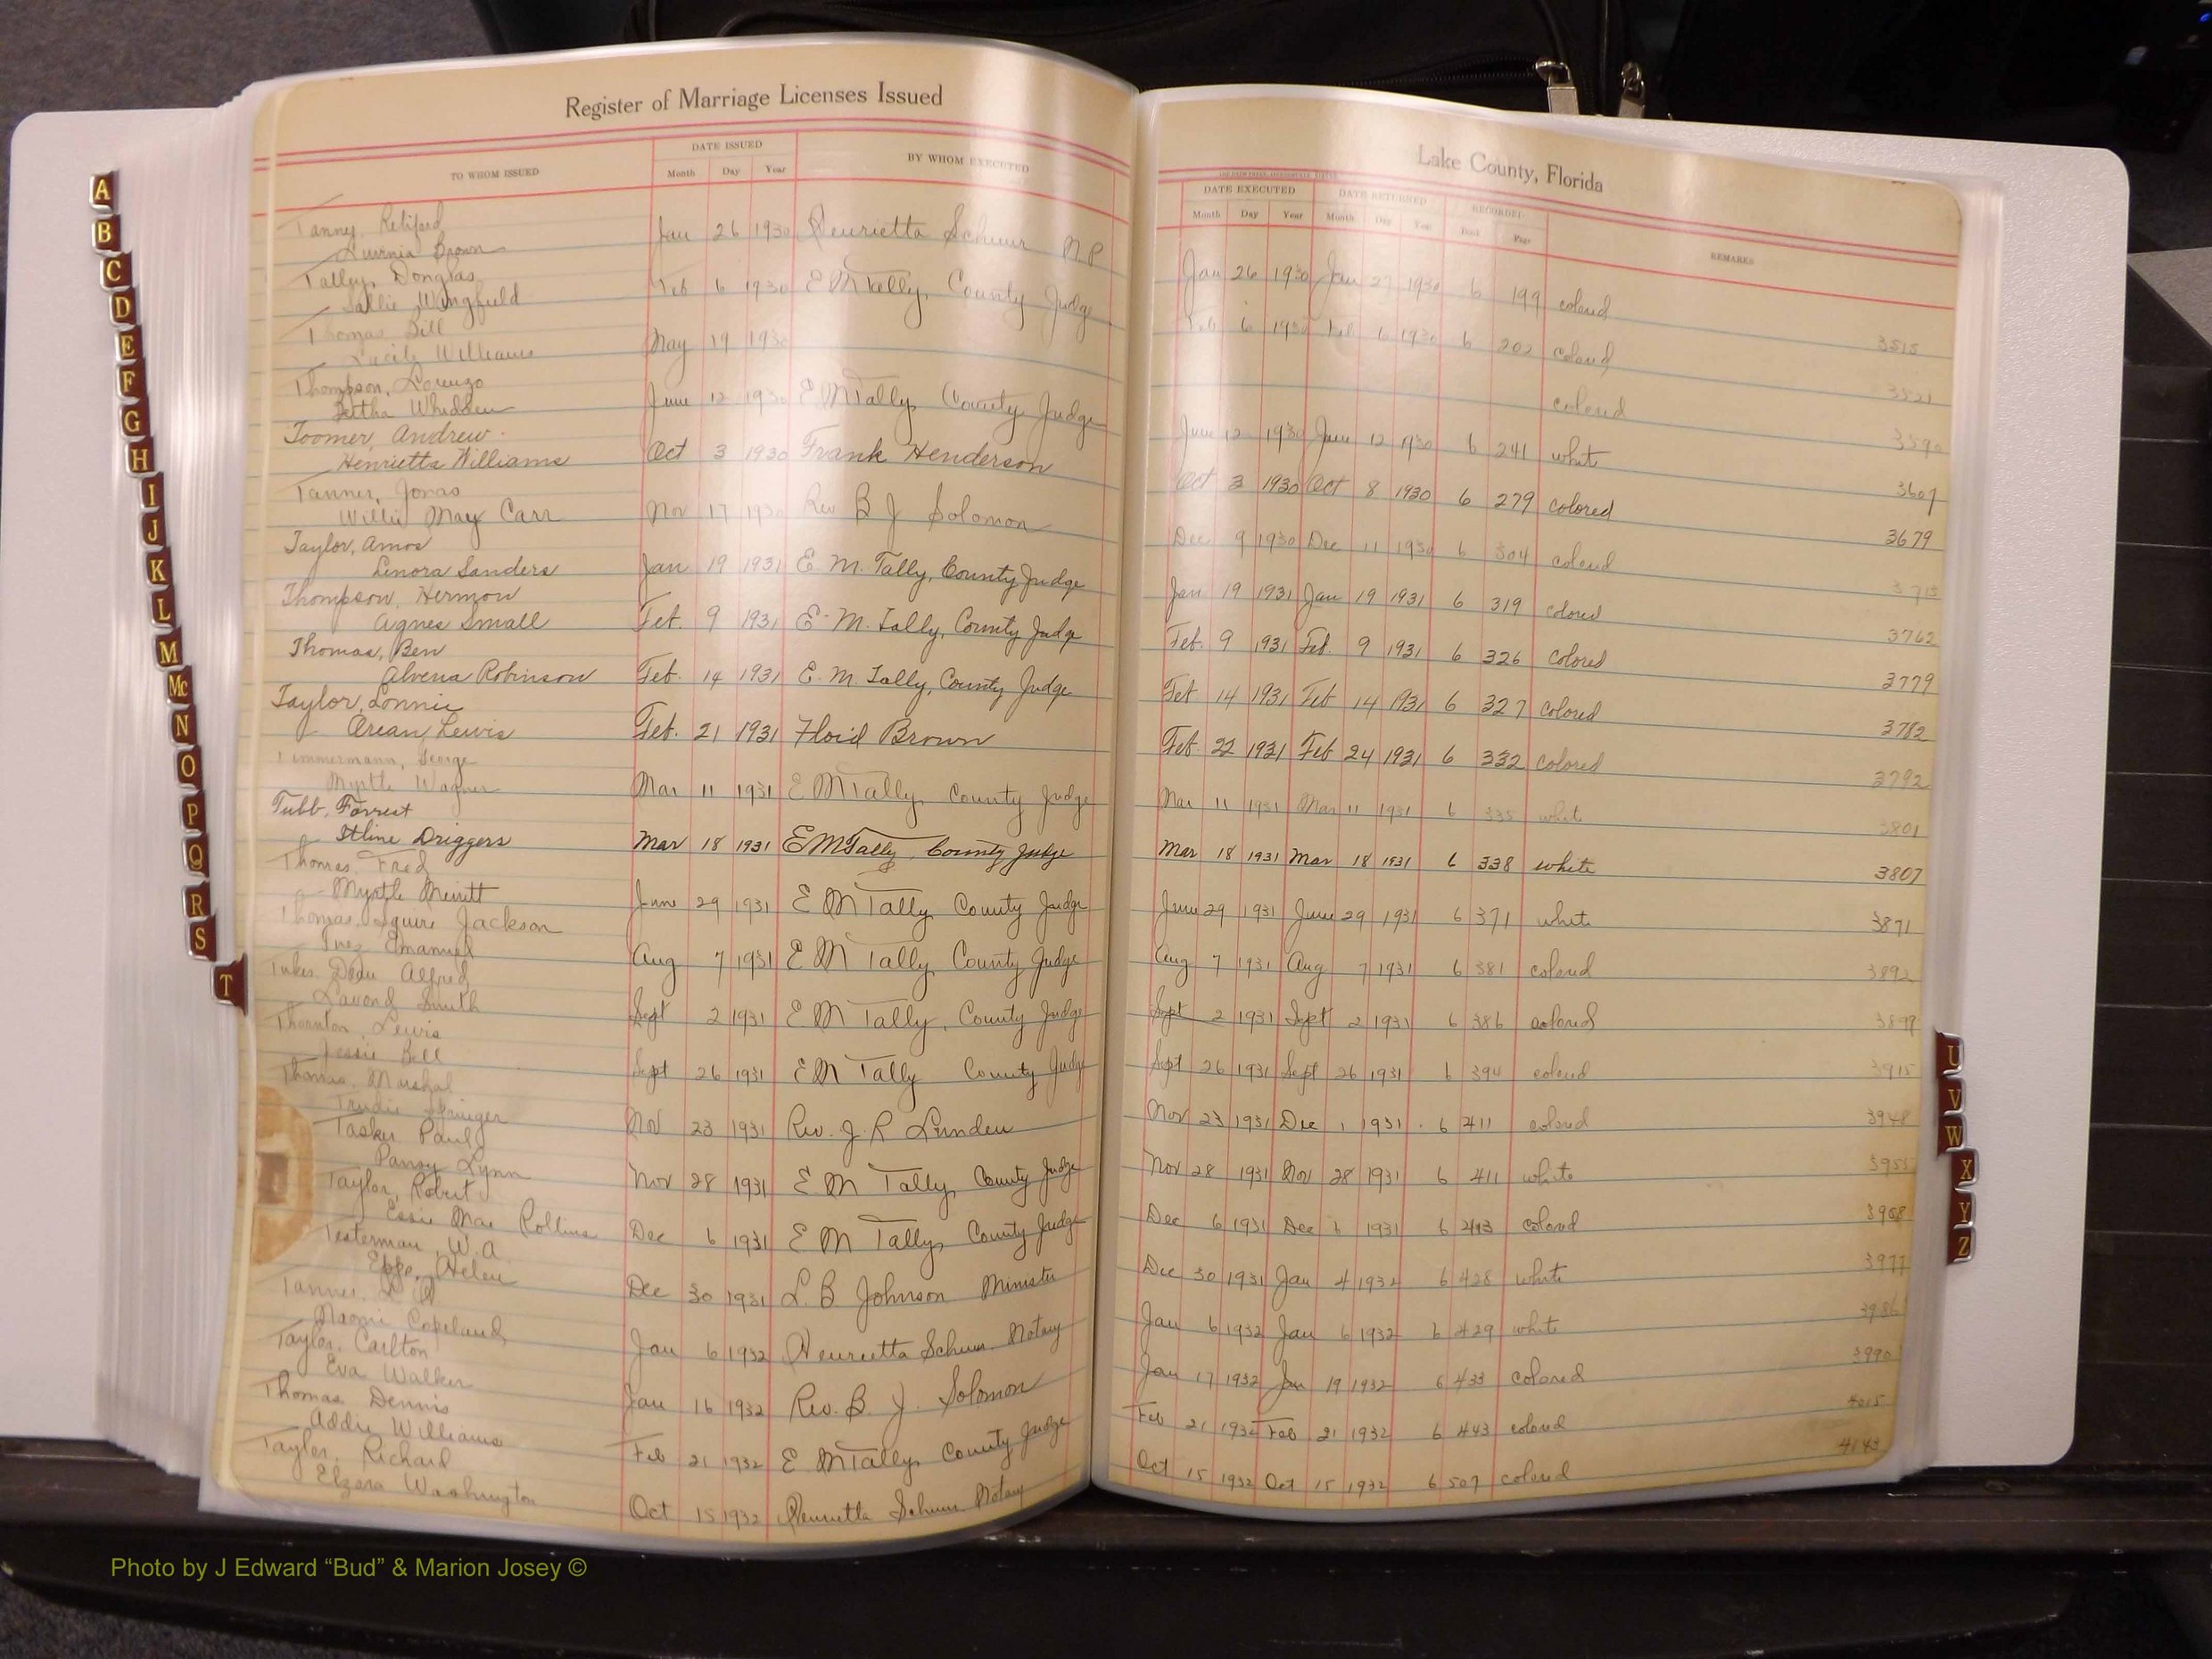 Register of Marriage Licenses Issued
TO WHOM ISSUED
DATE ISSUED
Month Day Year
BY WHOM EXECUTED
Tanner,
Brown
Jan 26 1930 Henrietta Schuur N P
Talley, Douglas
Sallie Wingfield
Feb 6 1930 E M Tally, County Judge
Thomas
Lucile Williams
May 19 1930
Thompson, Lorenzo
Whidden
June 12 1930 E M Tally, County Judge
Toomer, Andrew
Henrietta Williams
Oct 3 1930 Frank Henderson
Tanner, Jonas
Willie May Carr
Nov 17 1930 Rev B J Solomon
Taylor, Amos
Lenora Sanders
Jan 19 1931 E. M. Tally, County Judge
Thompson, Hermon
Agnes Small
Feb. 9 1931 E. M. Tally, County Judge
Thomas, Ben
Alvena Robinson
Feb. 14 1931 E. M. Tally, County Judge
Taylor, Lonnie
Orean Lewis
Feb. 21 1931 Floid Brown
Timmermann, George
Myrtle Wagner
Mar 11 1931 E M Tally County Judge
Tubb, Forrest
Itline Driggers
Mar 18 1931 E M Tally, County Judge
Thomas, Fred
Myrtle Merritt
June 29 1931 E M Tally County Judge
Thomas, Squire Jackson
Inez Emanuel
Aug 7 1931 E M Tally, County Judge
Alfred
Smith
Sept 2 1931 E M Tally, County Judge
Thornton, Lewis
Jessie Bell
Sept 26 1931 E M Tally County Judge
Thomas, Marshal
Trudie
Nov 23 1931 Rev. J. R
Tasker Paul
Pansy Lynn
Nov 28 1931 E M Tally, County Judge
Taylor, Robert
Essie Mae Rollins
Dec 6 1931 E M Tally, County Judge
Testerman, W. A.
Epps, Helen
Dec 30 1931 L. B Johnson Minister
Tanner,
Naomi Copeland
Jan 6 1932 Henrietta Schuur Notary
Taylor, Carlton
Eva Walker
Jan 16 1932 Rev. B. J. Solomon
Thomas Dennis
Addie Williams
Feb 21 1932 E M Tally, County Judge
Taylor, Richard
Elzora Washington
Oct 15 1932 Henrietta Schuur Notary
Lake County, Florida
DATE EXECUTED DATE RETURNED RECORDED
Month Day Year Month Day Year Book Page
REMARKS
Jan 26 1930 Jan 27 1930 6 199 colored
3515
Feb 6 1930 Feb 6 1930 6 202 colored
3521
colored
3590
June 12 1930 June 12 1930 6 241 white
3607
Oct 3 1930 Oct 8 1930 6 279 colored
3679
Dec 9 1930 Dec 11 1930 6 304 colored
Jan 19 1931 Jan 19 1931 6 319 colored
3762
Feb. 9 1931 Feb. 9 1931 6 326 colored
3779
Feb 14 1931 Feb 14 1931 6 327 colored
3782
Feb. 22 1931 Feb 24 1931 6 332 colored
3792
Mar 11 1931 Mar 11 1931 6 335 white
3801
Mar 18 1931 Mar 18 1931 6 338 white
3807
June 29 1931 June 29 1931 6 371 white
3871
Aug 7 1931 Aug 7 1931 6 381 colored
3892
Sept 2 1931 Sept 2 1931 6 386 colored
3899
Sept 26 1931 Sept 26 1931 6 394 colored
3915
Nov 23 1931 Dec 1 1931 6 411 colored
3948
Nov 28 1931 Nov 28 1931 6 411 white
3955
Dec 6 1931 Dec 6 1931 6 413 colored
3958
Dec 30 1931 Jan 4 1932 6 428 white
3977
Jan 6 1932 Jan 6 1932 6 429 white
3986
Jan 17 1932 Jan 19 1932 6 433 colored
3990
Feb 21 1932 Feb 21 1932 6 443 colored
4015
Oct 15 1932 Oct 15 1932 6 507 colored
4143
A
B
C
D
E
F
G
H
I
J
K
L
M
Mc
N
O
P
Q
R
S
T
U
V
W
X
Y
Z
Photo by J Edward “Bud” & Marion Josey ©